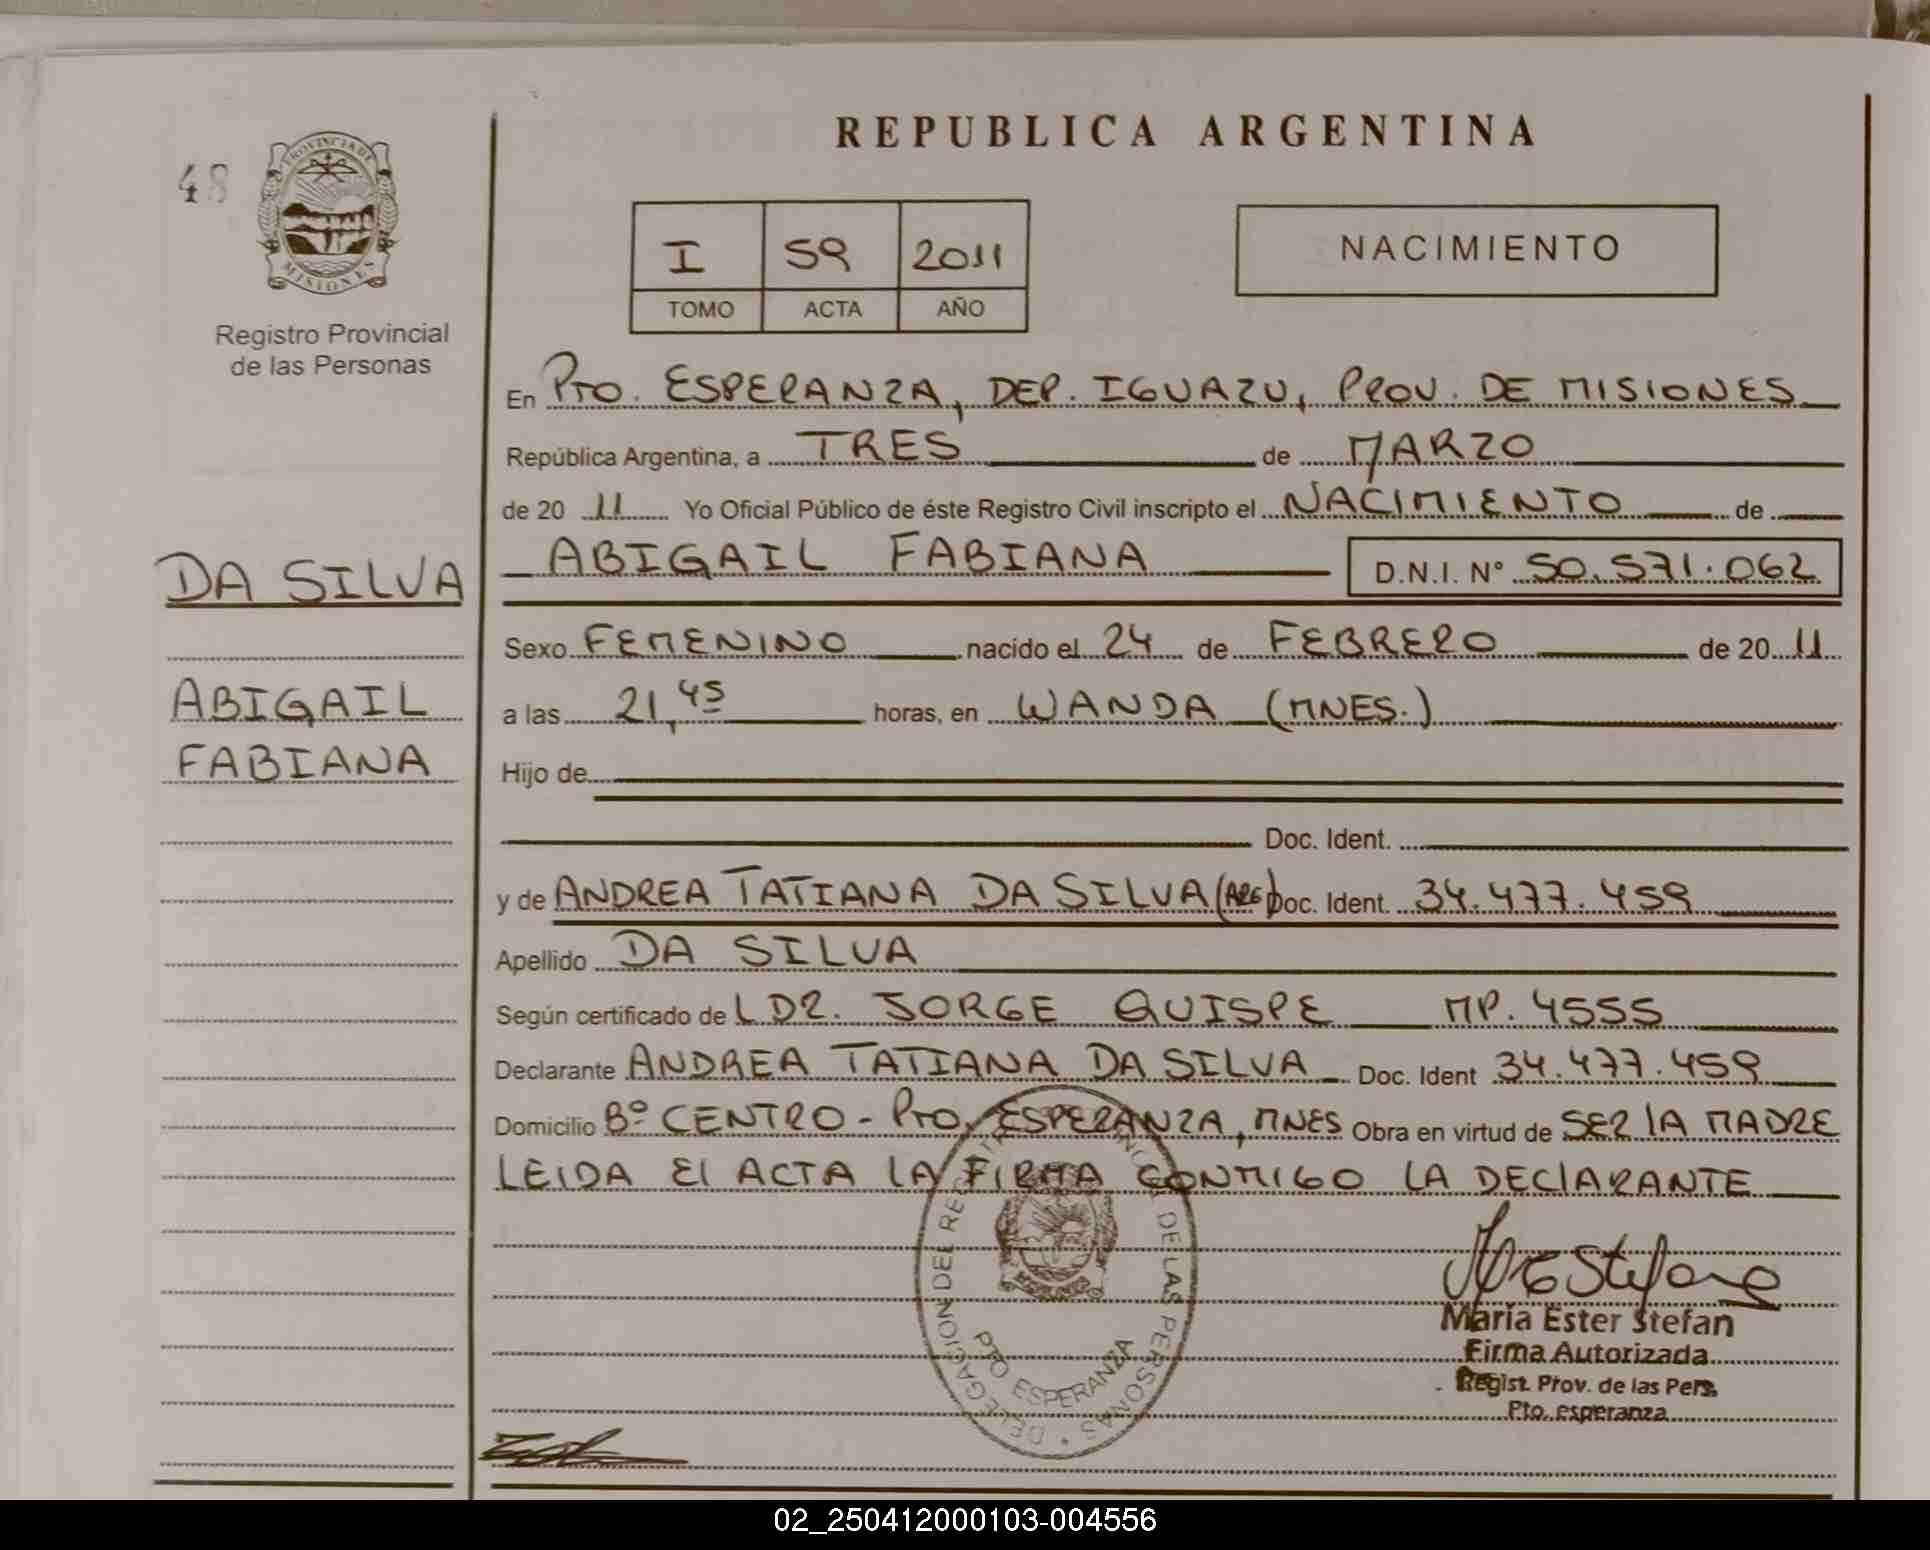 REPUBLICA ARGENTINA
48
PROVINCIA DE
MISIONES
Registro Provincial
de las Personas
I 59 2011
TOMO ACTA AÑO
NACIMIENTO
En Pto. ESPERANZA, DEP. IGUAZU, PROV. DE MISIONES
República Argentina, a TRES de MARZO
de 20 11 Yo Oficial Público de éste Registro Civil inscripto el NACIMIENTO de
DA SILVA
ABIGAIL FABIANA D.N.I. N° 50.571.062
Sexo FEMENINO nacido el 24 de FEBRERO de 20 11
ABIGAIL
a las 21,45 horas, en WANDA (MNES.)
FABIANA
Hijo de
Doc. Ident.
y de ANDREA TATIANA DA SILVA (ARG) Doc. Ident. 34.477.459
Apellido DA SILVA
Según certificado de LDR. JORGE QUISPE MP. 4555
Declarante ANDREA TATIANA DA SILVA Doc. Ident 34.477.459
Domicilio Bº CENTRO - Pto. ESPERANZA, MNES Obra en virtud de SER LA MADRE
LEIDA El ACTA LA FIRMA CONMIGO LA DECLARANTE
DELEGACION DEL DE LAS PERSONAS
PTO ESPERANZA
María Ester Stefan
Firma Autorizada
Regist. Prov. de las Pers.
Pto. esperanza
02_250412000103-004556